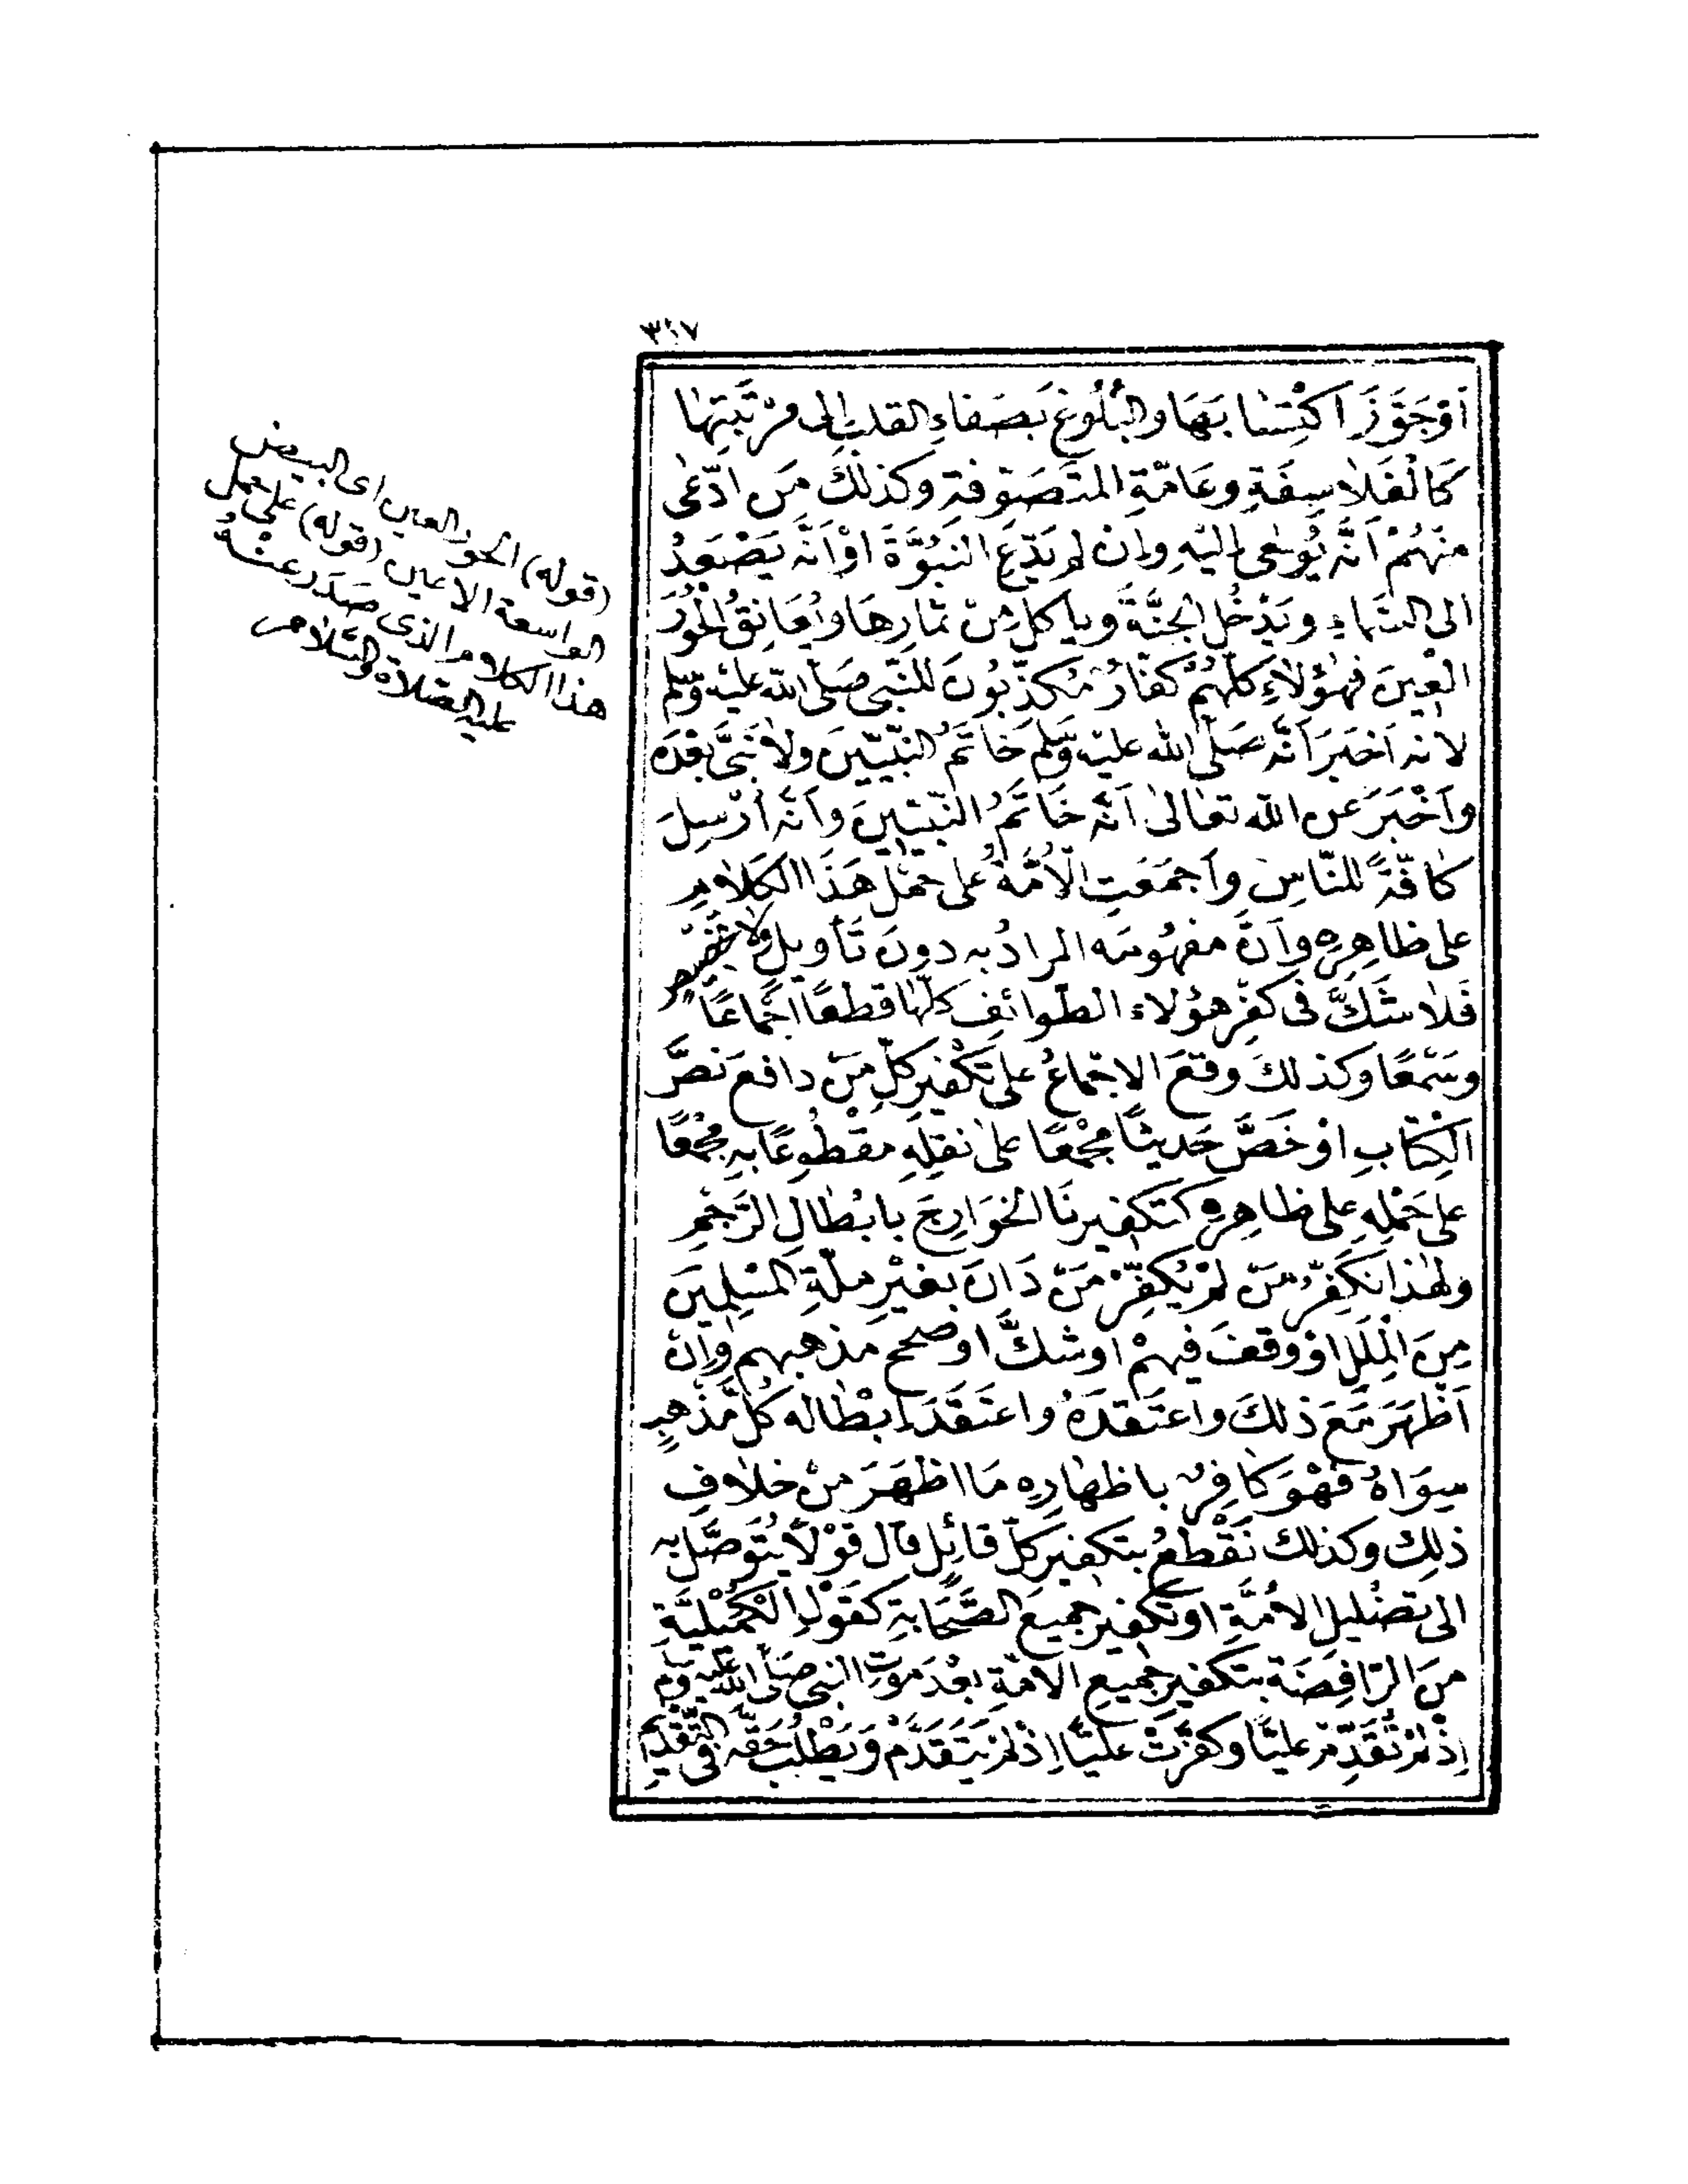 ٣٤٧
اَوْ جَوَّزَ اكْتِسَابَهَا وَالْبُلُوغَ بِصَفَاءِ القلب اِلى مَرْتَبَتِهَا
كَالْفَلَاسِفَةِ وَعَامَّةِ المتَصَوّفةِ وكذلكَ مَن ادَّعٰى
منهُمْ اَنَّهُ يُوحٰى اِليْهِ وَاِن لم يَدَّعِ النبُوَّةَ اَوْ اَنَّهُ يَصْعَدُ
الى السَّمَاءِ وَيَدْخُلُ الجنَّةَ وياكل مِنْ ثمَارِهَا وَيُعَانِقُ الْحُورَ
الْعِينَ فهٰؤُلَاءِ كلّهُمْ كفّارٌ مُكَذِّبُونَ للنّبى صَلّى الله عليْه وَسّلم
لانه اَخبَرَ اَنَّهُ صَلّى الله عليْه وَسّلم خَاتَمُ النّبيّينَ ولَا نَبىَّ بعْدَهُ
وَاَخْبَرَ عن الله تعَالىٰ اَنَّهُ خَاتَمُ النّبيّينَ وَاَنَّهُ اُرْسِلَ
كافَّةً للنّاسِ وَاَجمَعَتِ الْاُمّةُ على حَمْلِ هَذَا الكَلَامِ
على ظاهِرِهِ وَاَنَّ مفهُومَه المرادُ به دونَ تَأويلٍ وَلَا تخْصِيصٍ
فَلَا شَكَّ فى كفْرِ هؤلاء الطّوائِفِ كلّهَا قطْعًا اِجْمَاعًا
وَسَمْعًا وكذلكَ وقعَ الاجْمَاعُ على تكْفيرِ كلّ مَنْ دافعَ نَصَّ
الكِتَابِ اوْ خَصَّ حَدِيثًا مُجْمَعًا على نقلِهِ مقْطُوعًا بهِ مُجْمَعًا
على حَمْلِهِ على ظاهِرِهِ كتكفيرِنَا الخوَارِجَ بابْطالِ الرَّجْمِ
ولِهٰذا نكَفّرُ مَنْ لمْ يُكفِّرْ مَنْ دَانَ بغَيْرِ ملّةِ المُسْلِمينَ
مِنَ المِلَلِ اَوْ وَقفَ فيهِمْ اوْ شكَّ او صحّح مذهبهم وَاِنْ
اَظْهَرَ مَعَ ذلكَ واعتَقدَهُ واعتَقَدَ ابْطَاله كلَّ مَذهبٍ
سِوَاهُ فهْوَ كافِرٌ باظهَارِهِ مَا اظهَرَ منْ خلَافِ
ذلِكَ وكذلكَ نَقْطَعُ بتكفيرِ كلّ قائِلٍ قال قوْلًا يُتَوَصَّلُ به
الى تضْليلِ الاُمَّةِ او تكفيرِ جميعِ الصَّحَابةِ كقَوْلِ الْكُمَيْلِيَّةِ
منَ الرّافِضَةِ بتكفيرِ جميعِ الامّةِ بعْدَ مَوْتِ النبى صَلّى الله عليه وسلم
اِذْ لمْ تُقَدِّمْ عليًّا وكفّرَتْ عليًّا اِذْ لمْ يَتَقَدَّمْ وَيَطْلُبْ حَقَّهُ فى التّقْدِيمِ
(قوله) الحور العين اى البيض
الواسعة الاعين (قوله) على حمل
هذا الكلام الذى صَدَر عنهُ
عليه الصّلاة والسّلام